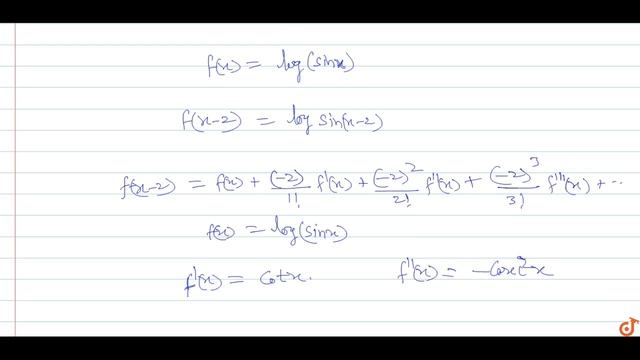 f(x) = log(sinx)
f(x-2) = log sin(x-2)
f(x-2) = f(x) + (-2)/1! f'(x) + (-2)²/2! f''(x) + (-2)³/3! f'''(x) + ...
f(x) = log(sinx)
f'(x) = cotx. f''(x) = -cosec²x